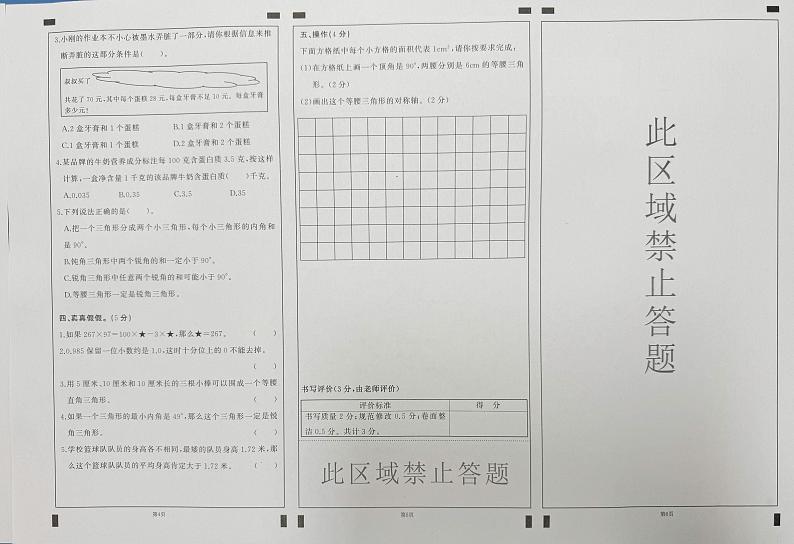 3.小刚的作业本不小心被墨水弄脏了一部分,请你根据信息来推
断弄脏的这部分条件是(　　)。
叔叔买了
共花了70元,其中每个蛋糕28元,每盒牙膏不足10元。每盒牙膏
多少元?
A.2盒牙膏和1个蛋糕　B.1盒牙膏和2个蛋糕
C.1盒牙膏和1个蛋糕　D.2盒牙膏和2个蛋糕
4.某品牌的牛奶营养成分标注每100克含蛋白质3.5克,按这样
计算,一盒净含量1千克的该品牌牛奶含蛋白质(　　)千克。
A.0.035　B.0.35　C.3.5　D.35
5.下列说法正确的是(　　)。
A.把一个三角形分成两个小三角形,每个小三角形的内角和
是90°。
B.钝角三角形中两个锐角的和一定小于90°。
C.锐角三角形中任意两个锐角的和可能小于90°。
D.等腰三角形一定是锐角三角形。
四、真真假假。(5分)
1.如果267×97=100×★-3×★,那么★=267。(　　)
2.0.985保留一位小数约是1.0,这时十分位上的0不能去掉。
(　　)
3.用5厘米、10厘米和10厘米长的三根小棒可以围成一个等腰
直角三角形。(　　)
4.如果一个三角形的最小内角是49°,那么这个三角形一定是锐
角三角形。(　　)
5.学校篮球队队员的身高各不相同,最矮的队员身高1.72米,那
么这个篮球队队员的平均身高肯定大于1.72米。(　　)
第4页
五、操作(4分)
下面方格纸中每个小方格的面积代表1cm²,请你按要求完成:
(1)在方格纸上画一个顶角是90°,两腰分别是6cm的等腰三角
形。(2分)
(2)画出这个等腰三角形的对称轴。(2分)
书写评价(3分,由老师评价)
评价标准　得 分
书写质量2分;规范修改0.5分;卷面整
洁0.5分。共计3分。
此区域禁止答题
第5页
此区域禁止答题
第6页